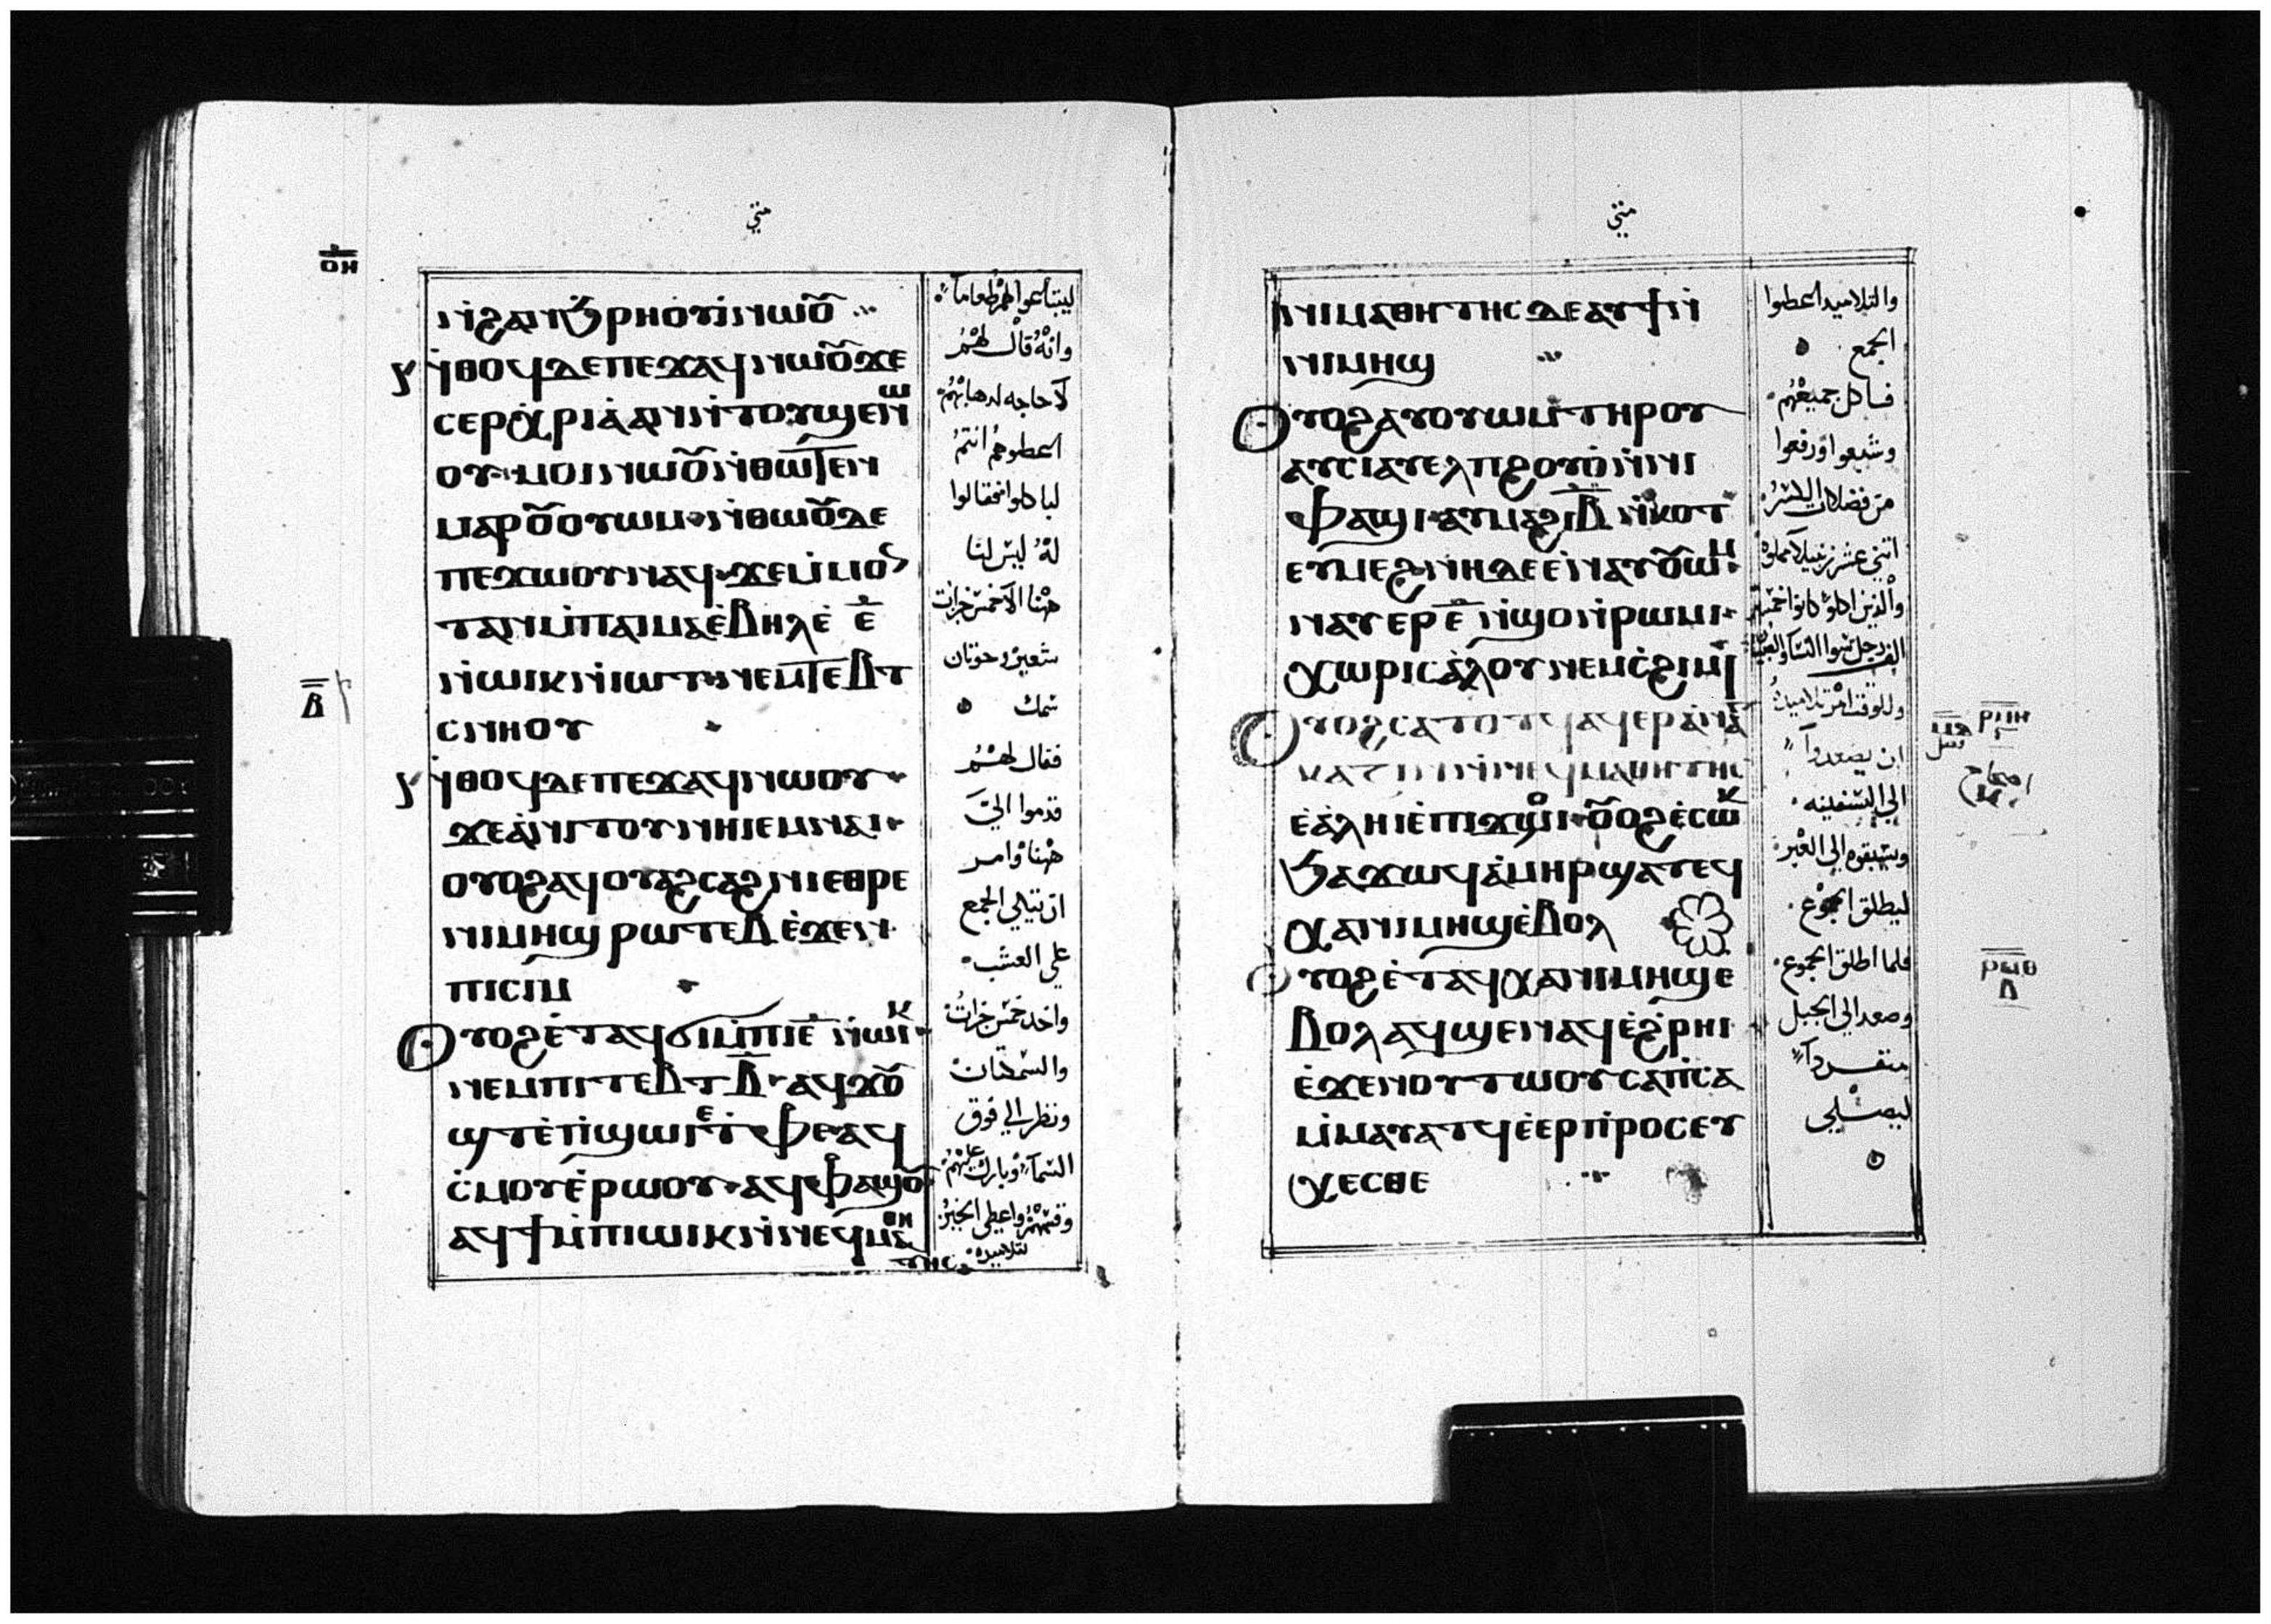 متي
ⲟⲏ
ⲛ̀ϩⲁⲛϧⲣⲏⲟⲩⲓ̀ⲛⲱⲟ̅
ⲛ̀ⲑⲟϥⲇⲉⲡⲉϫⲁϥⲛⲱⲟ̅ϫⲉ
ⲥⲉⲣⲭⲣⲓⲁ̀ⲁⲛⲛ̀ⲧⲟⲩϣⲉⲛⲱ
ⲟⲩ·ⲙⲟⲓⲛⲱⲟ̅ⲛ̀ⲑⲱⲧⲉⲛ
ⲙⲁⲣⲟ̅ⲟⲩⲱⲙ·ⲛ̀ⲑⲱⲟ̅ⲇⲉ
ⲡⲉϫⲱⲟⲩⲛⲁϥ·ϫⲉⲙ̀ⲙⲟ
ⲧⲁⲛⲙ̀ⲡⲁⲓⲙⲁⲉ̀ⲃⲏⲗⲉ̀ ⲉ̅
ⲛ̀ⲱⲓⲕⲛ̀ⲓⲱⲧ·ⲛⲉⲙⲧⲉⲃⲧ
ⲥⲛⲏⲟⲩ
ⲃ̅
ⲛ̀ⲑⲟϥⲇⲉⲡⲉϫⲁϥⲛⲱⲟⲩ·
ϫⲉⲁ̀ⲛⲓⲧⲟⲩⲛⲏⲓⲉⲙⲛⲁⲓ·
ⲟⲩⲟϩⲁϥⲟⲩⲁϩⲥⲁϩⲛⲓⲉⲑⲣⲉ
ⲛⲓⲙⲏϣ ⲣⲱⲧⲉⲃ ⲉ̀ϫⲉⲛ·
ⲡⲓⲥⲓⲙ
ⲟⲩⲟϩⲉ̀ⲧⲁϥϭⲓⲙ̀ⲡⲓⲉ̅ ⲛ̀ⲱⲓⲕ·
ⲛⲉⲙⲡⲓⲧⲉⲃⲧ ⲃ̅·ⲁϥϫⲟ̅
ϣⲧⲉ̀ⲡ̀ϣⲱⲓⲉ̀ⲧ̀ⲫⲉ·ⲁϥ
ⲥ̀ⲙⲟⲩⲉ̀ⲣⲱⲟⲩ·ⲁϥⲫⲁϣⲟ̅·
ⲁϥϯⲙ̀ⲡⲓⲱⲓⲕⲛ̀ⲛⲉϥⲙⲁⲑⲏ
ⲧⲏⲥ·
ليبتاعوا لهم طعاماً
وانه قال لهم
لا حاجه لدهابهم
اعطوهم انتم
لياكلوا فقالوا
له ليس لنا
ههنا الا خمس خبزات
شعير وحوتان
سمك
فقال لهم
قدموا اليّ
ههنا وامر
ان تتكي الجمع
علي العشب
واخد خمس خبزات
والسمكتان
ونظر الي فوق
السماء وبارك عليهم
وقسمهم واعطي الخبز
لتلاميده
متي
ⲛⲓⲙⲁⲑⲏⲧⲏⲥⲇⲉⲁⲩϯⲛ̀
ⲛⲓⲙⲏϣ
ⲟⲩⲟϩⲁⲩⲟⲩⲱⲙⲧⲏⲣⲟⲩ
ⲁⲩⲥⲓⲁⲩⲉⲗⲡϩⲟⲩⲟ̀ⲛ̀ⲛⲓ
ⲫⲁϣⲓ·ⲁⲩⲙⲁϩⲓ̅ⲃ̅ ⲛ̀ⲕⲟⲧ
ⲉⲩⲙⲉϩⲛⲏⲇⲉⲉ̀ⲛⲁⲩⲟ̅ⲱⲙ·
ⲛⲁⲩⲉⲣ ⲉ̅ ⲛ̀ϣⲟⲛ̀ⲣⲱⲙⲓ·
ⲭⲱⲣⲓⲥⲁ̀ⲗⲟⲩⲛⲉⲙⲥ̀ϩⲓⲙⲓ
ⲟⲩⲟϩⲥⲁⲧⲟⲧϥⲁϥⲉⲣⲁ̀ⲛⲁ
ⲛⲅⲕⲁⲍⲓⲛⲛ̀ⲛⲉϥⲙⲁⲑⲏⲧⲏⲥ
ⲉ̀ⲁ̀ⲗⲏⲓⲉ̀ⲡⲓϫⲟⲓ·ⲟ̅ⲟϩⲉ̀ⲥⲱⲕ
ϧⲁϫⲱϥⲁ̀ⲙⲏⲣϣⲁⲧⲉϥ
ⲭⲁⲛⲓⲙⲏϣⲉ̀ⲃⲟⲗ
ⲟⲩⲟϩⲉ̀ⲧⲁϥⲭⲁⲛⲓⲙⲏϣⲉ
ⲃⲟⲗⲁϥϣⲉⲛⲁϥⲉ̀ϩ̀ⲣⲏⲓ
ⲉ̀ϫⲉⲛⲟⲩⲧⲱⲟⲩⲥⲁⲡ̀ⲥⲁ
ⲙ̀ⲙⲁⲩⲁⲧϥⲉ̀ⲉⲣⲡ̀ⲣⲟⲥⲉⲩ
ⲭⲉⲥⲑⲉ
والتلاميد اعطوا
الجمع
فاكل جميعهم
وشبعوا ورفعوا
من فضلات الكسر
اتني عشر زنبيلا مملوه
والذين اكلوا كانوا خمسه
الف رجل سوا النسا والصبيان
وللوقت امر تلاميده
ان يصعدوا
الي السفينه
ويسبقوه الي العبر
ليطلق الجموع
فلما اطلق الجموع
وصعد الي الجبل
منفرداً
ليصلي
ⲣⲙⲏ
ⲣⲙⲑ
ⲇ